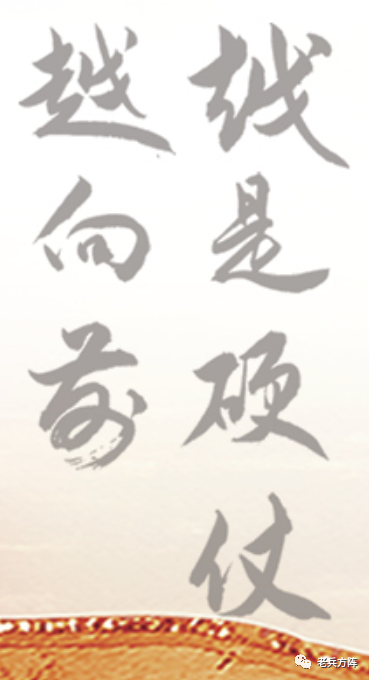 越是硬仗
越向前
老兵方阵